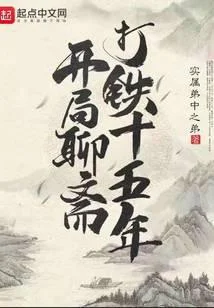 起点中文网
打铁十五年
开局聊斋
实属弟中之弟 著